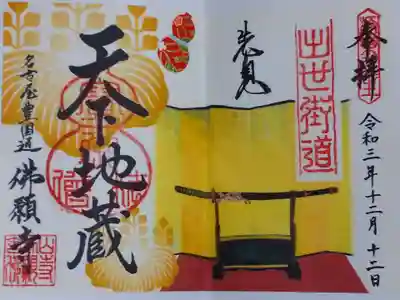 奉拝
令和三年十二月十二日
出世街道
天下地蔵
名古屋豊国通
佛願寺